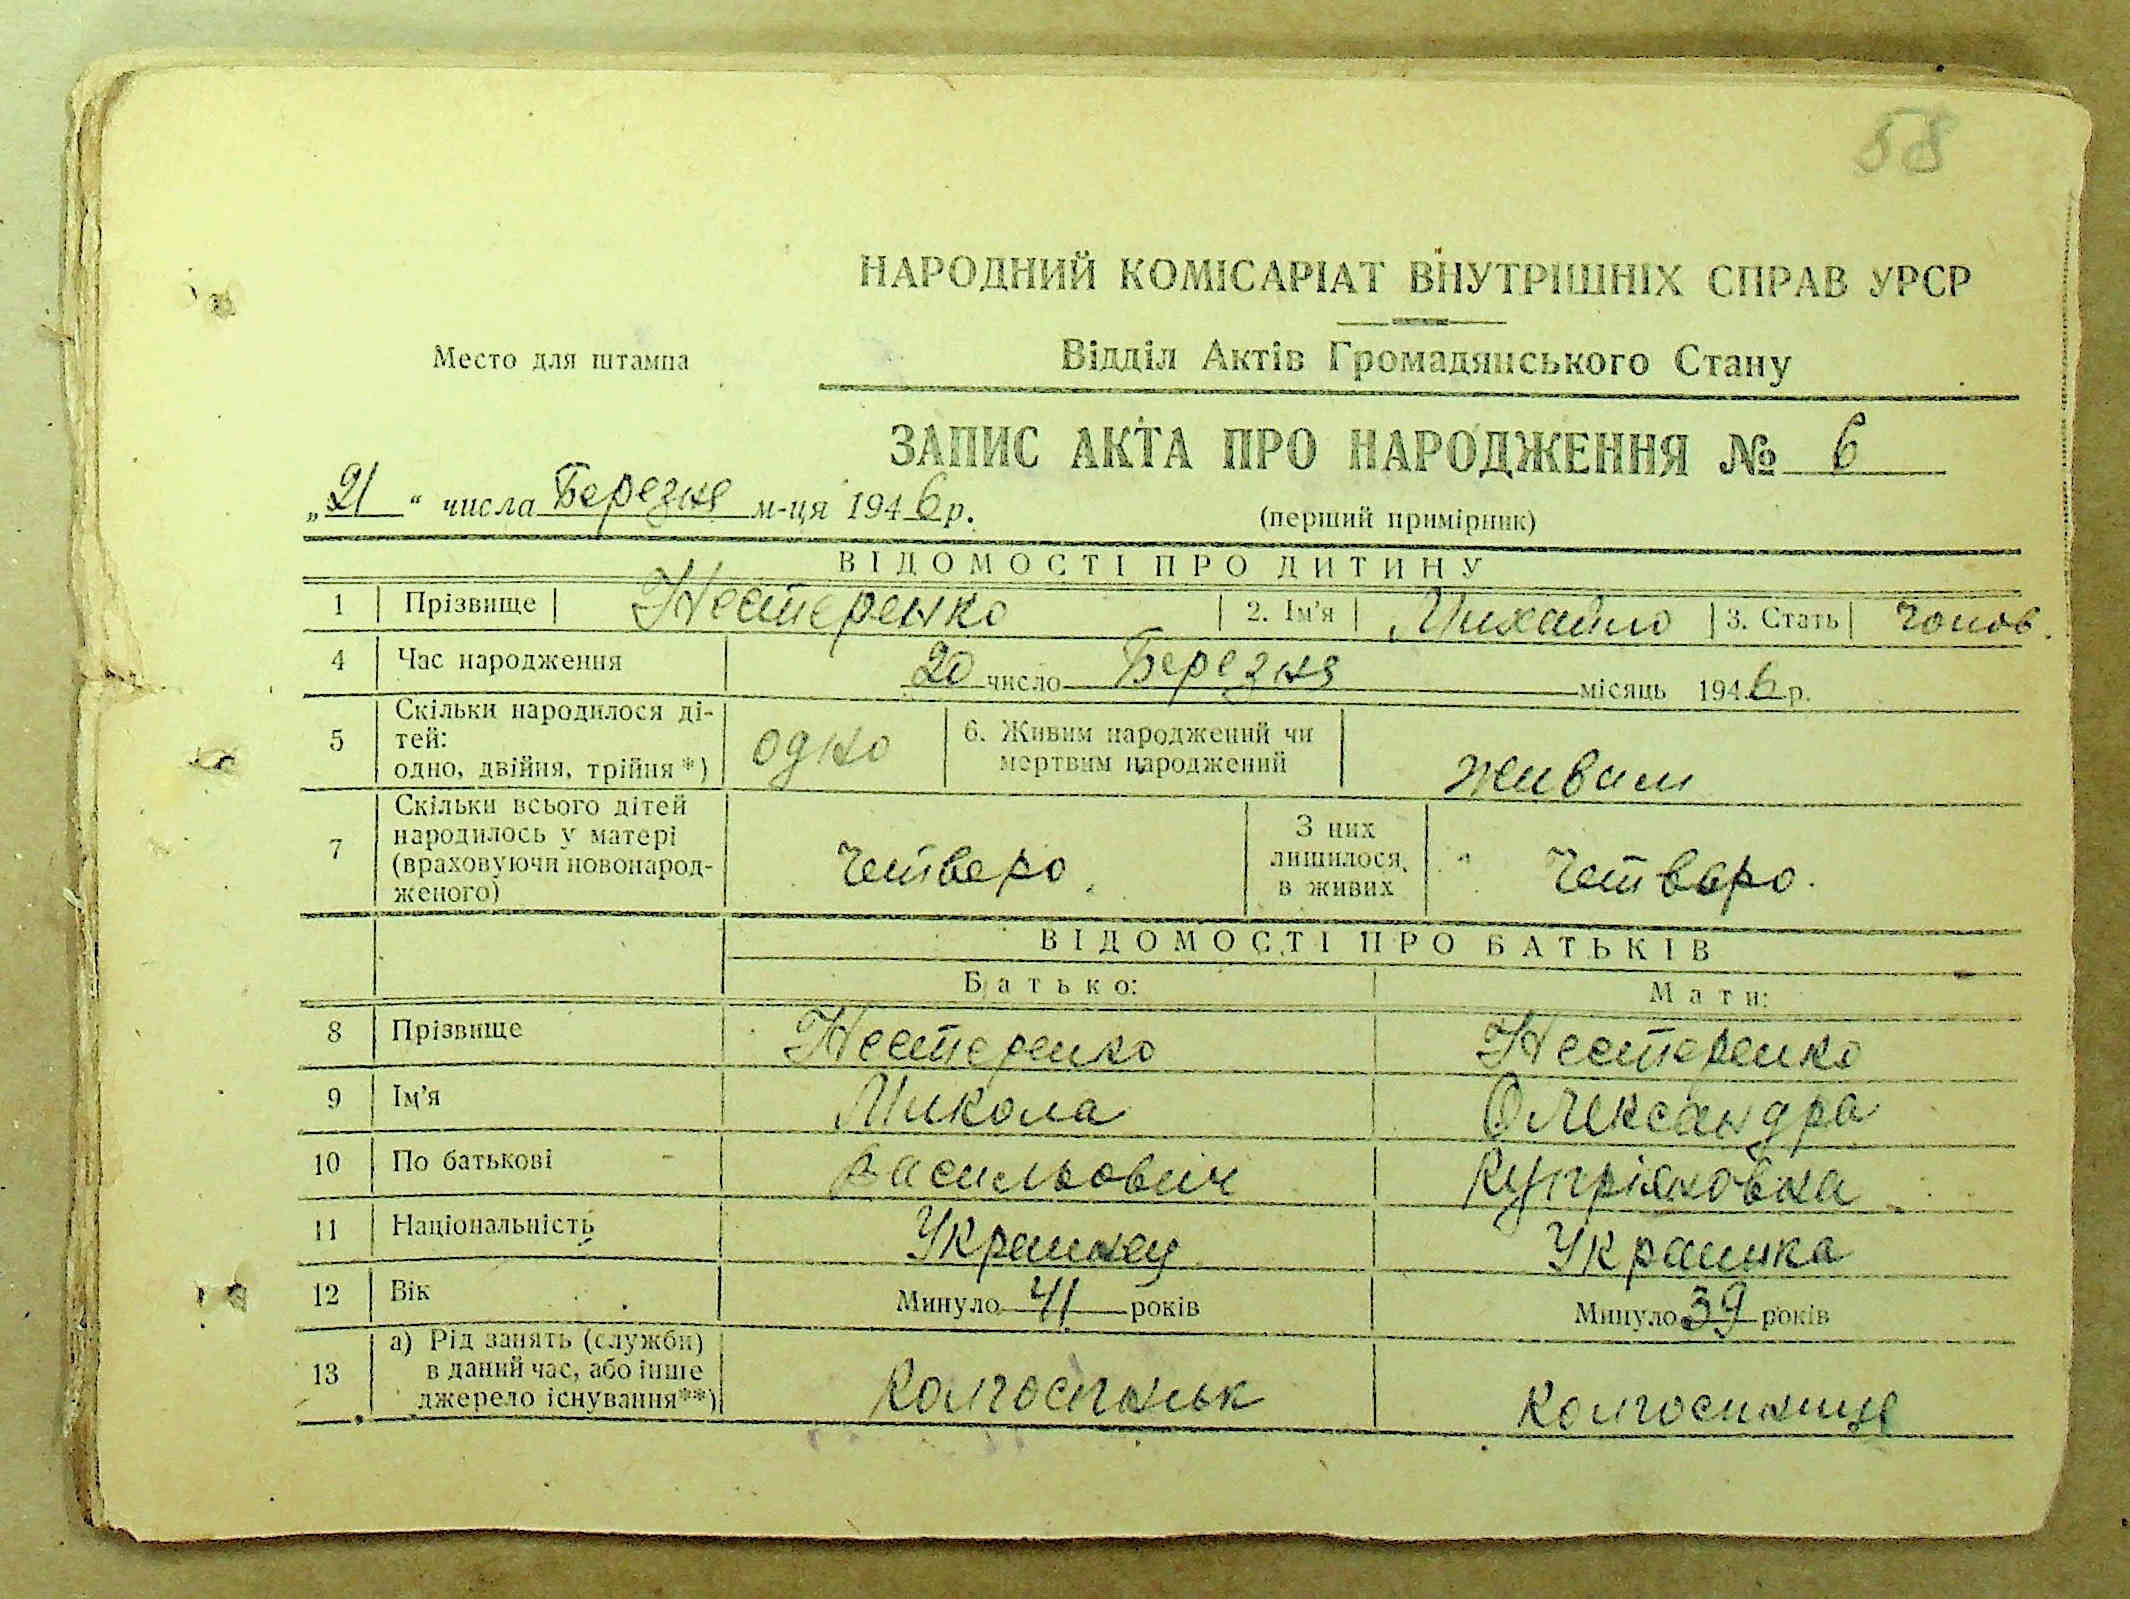 58
НАРОДНИЙ КОМІСАРІАТ ВНУТРІШНІХ СПРАВ УРСР
Место для штампа
Відділ Актів Громадянського Стану
ЗАПИС АКТА ПРО НАРОДЖЕННЯ № 6
„21“ числа Березня м-ця 1946 р.
(перший примірник)
ВІДОМОСТІ ПРО ДИТИНУ
1 Прізвище Нестеренко 2. Ім'я Михайло 3. Стать Чолов.
4 Час народження 20 число Березня місяць 1946 р.
5 Скільки народилося ді-
тей:
одно, двійня, трійня*) одно 6. Живим народжений чи
мертвим народжений живим
7 Скільки всього дітей
народилось у матері
(враховуючи новонарод-
женого) Четверо. З них
лишилося
в живих Четверо.
ВІДОМОСТІ ПРО БАТЬКІВ
Батько: Мати:
8 Прізвище Нестеренко Нестеренко
9 Ім'я Микола Олександра
10 По батькові Васильович Купріяновна
11 Національність Украинец Украинка
12 Вік Минуло 41 років Минуло 39 років
13 а) Рід занять (служби)
в даний час, або інше
джерело існування**) Колгоспнык Колгоспнице